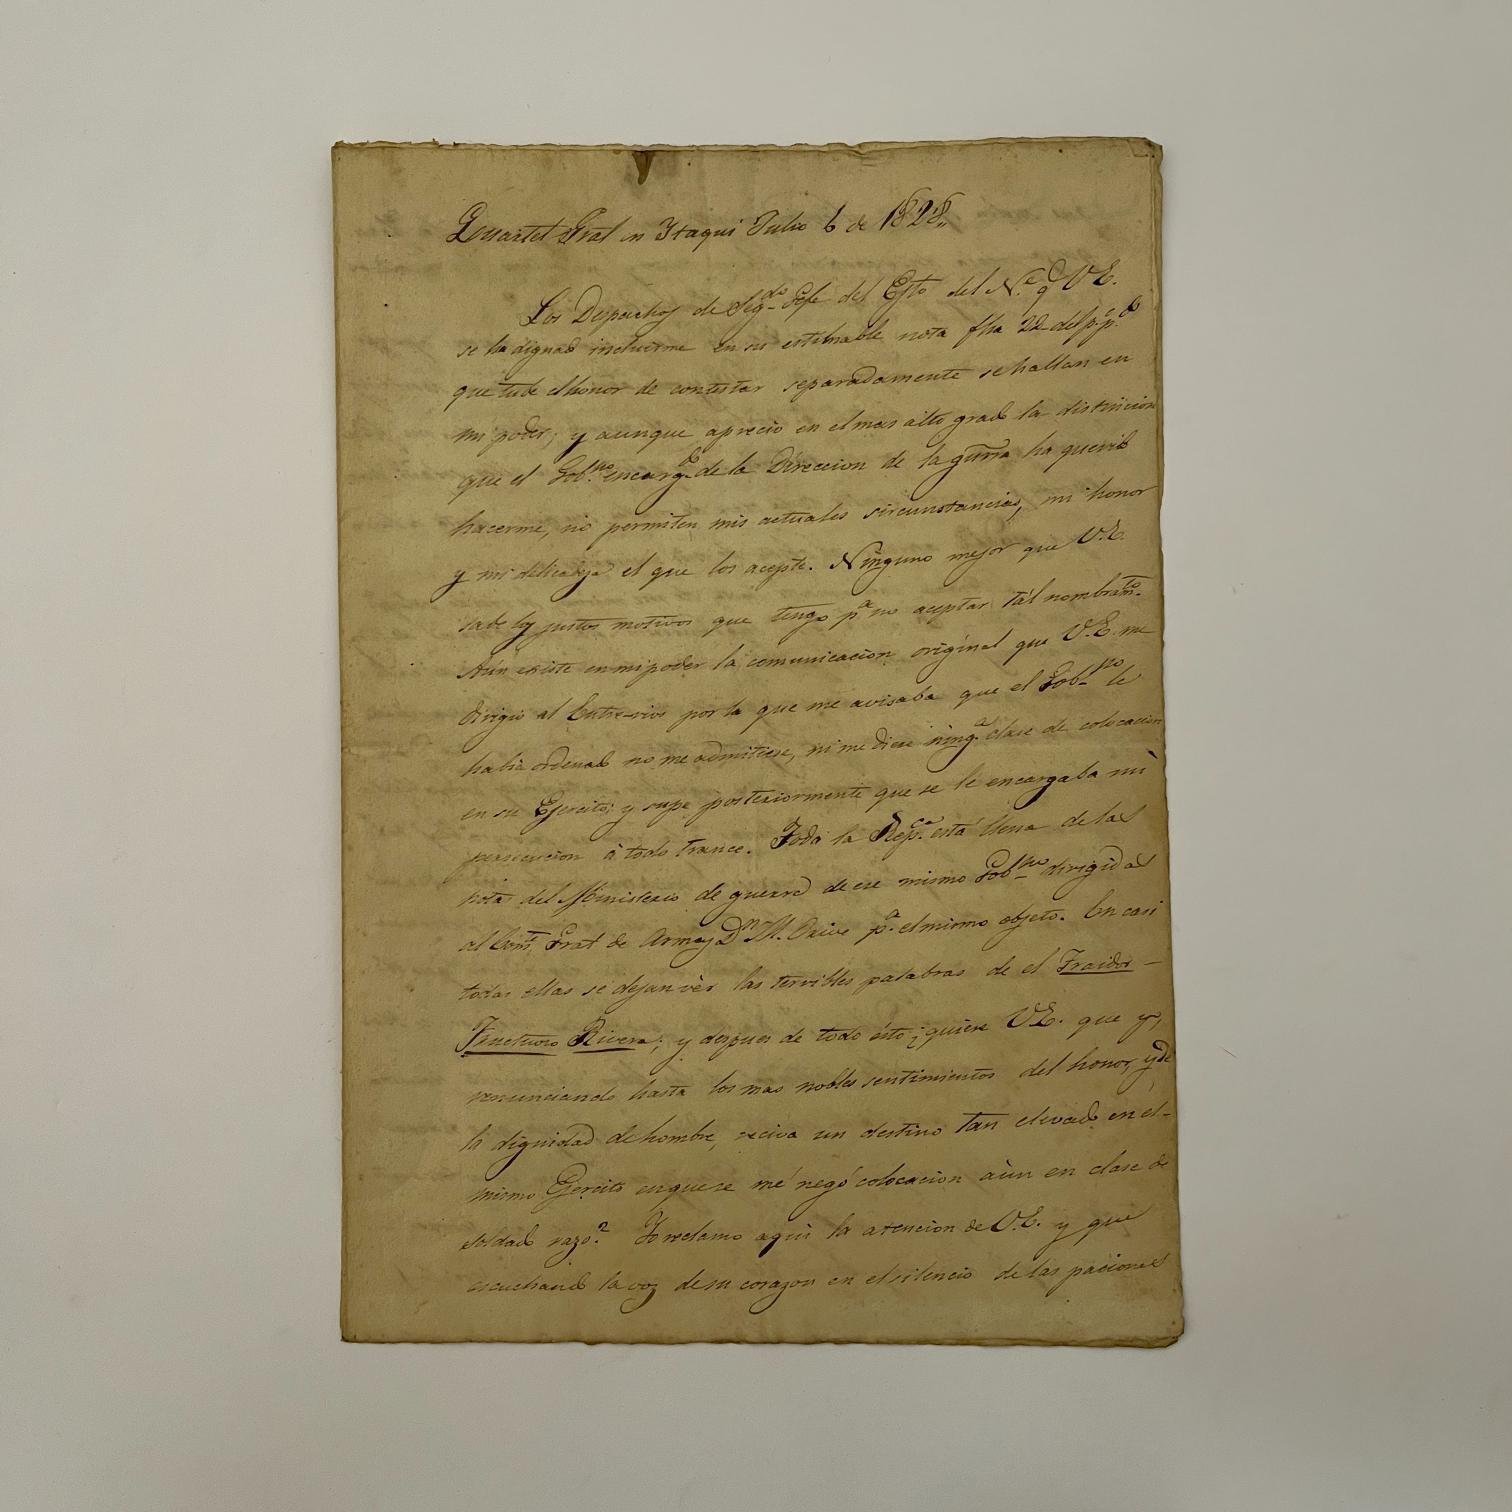 Quartel Gral en Ytaqui Julio 6 de 1828.
Los Despachos de Seg.do Gefe del Ejto del N.e q V.E.
se ha dignado incluirme en su estimable nota fha 22 del p.p.do
que tube el honor de contestar separadamente se hallan en
mi poder; y aunque aprecio en el mas alto grado la distincion
que el Gob.no encarg.do de la Direccion de la guerra ha querido
hacerme, no permiten mis actuales sircunstancias, mi honor
y mi delicadeza el que los acepte. Ninguno mejor que V.E.
sabe los justos motivos que tengo p.a no aceptar tál nombram.to
Aún existe en mi poder la comunicacion original que V.E. me
dirigio al Entre-rios por la que me avisaba que el Gob.no le
habia ordenado no me admitiese, ni me diese ning.a clase de colocacion
en su Ejercito; y supe posteriormente que se le encargaba mi
persecucion à todo trance. Toda la Rep.ca está llena de las
notas del Ministerio de guerra de ese mismo Gob.no dirigidas
al Com.te Gral de Armas D.n M. Orive p.a el mismo objeto. En casi
todas ellas se dejan vèr las terribles palabras de el Traidor
Fructuoso Rivera; y despues de todo ésto ¿quiere V.E. que yo,
renunciando hasta los mas nobles sentimientos del honor, y de
la dignidad de hombre, reciva un destino tan elevado en el
mismo Ejercito en que se me negó colocacion aùn en clase de
soldado razo? Yo reclamo aqui la atencion de V.E. y que
escuchando la voz de su corazon en el silencio de las paciones